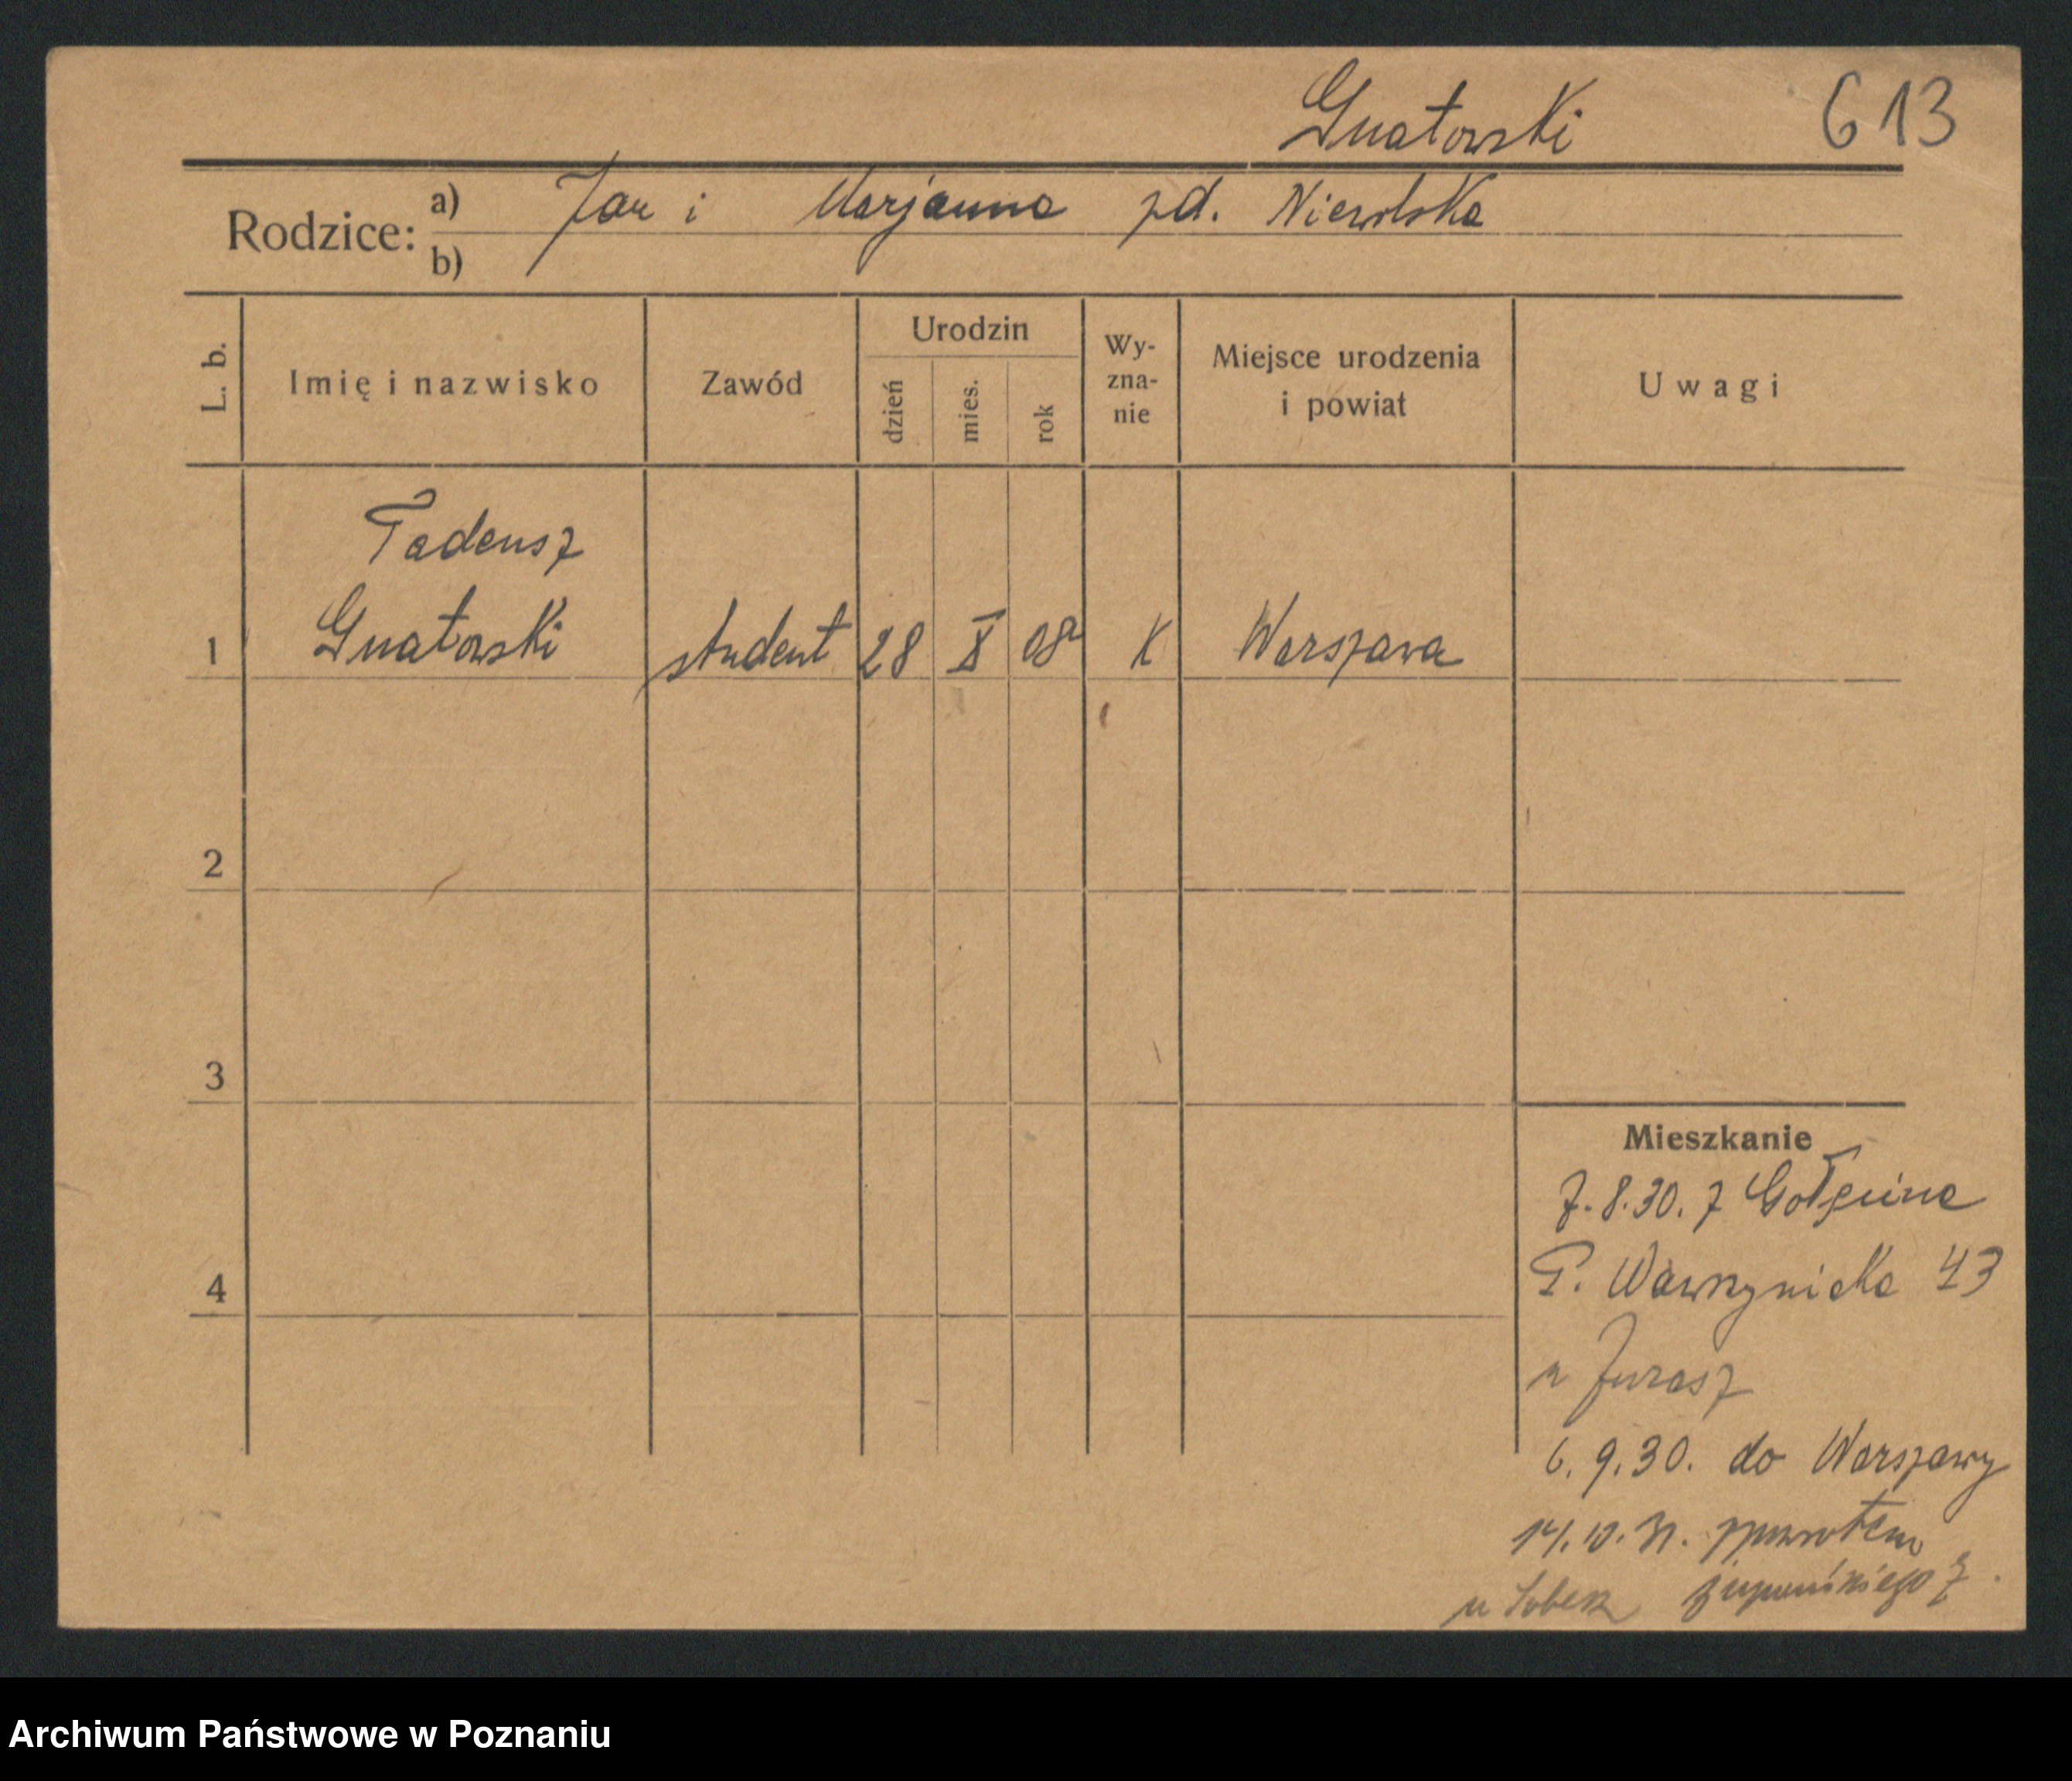 Gnatowski 613
Rodzice: a) Jan i Marjanna zd. Niewolska
b)
L. b. Imię i nazwisko Zawód Urodzin dzień mies. rok Wy-zna-nie Miejsce urodzenia i powiat Uwagi
Tadeusz
1 Gnatowski student 28 X 08 K Warszawa
2
3
Mieszkanie
7.8.30. z Gołęcina
4
P. Wawrzyniaka 43
u Jurasz
6.9.30. do Warszawy
zpowrotem
u Żupańskiego 7.
Archiwum Państwowe w Poznaniu